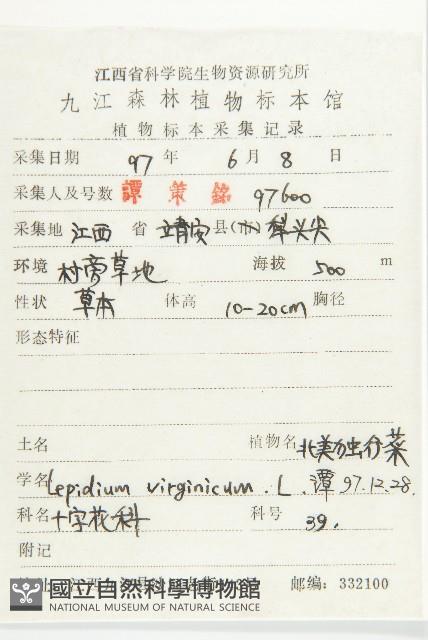 江西省科学院生物资源研究所
九江森林植物标本馆
植物标本采集记录
采集日期 97 年 6 月 8 日
采集人及号数 譚策銘 97600
采集地 江西 省 靖安 县(市)
环境 村旁草地 海拔 500 m
性状 草本 体高 10-20cm 胸径
形态特征
土名 植物名 北美独行菜
学名 Lepidium virginicum . L . 潭 97.12.28.
科名 十字花科 科号 39.
附记
邮编: 332100
國立自然科學博物館
NATIONAL MUSEUM OF NATURAL SCIENCE